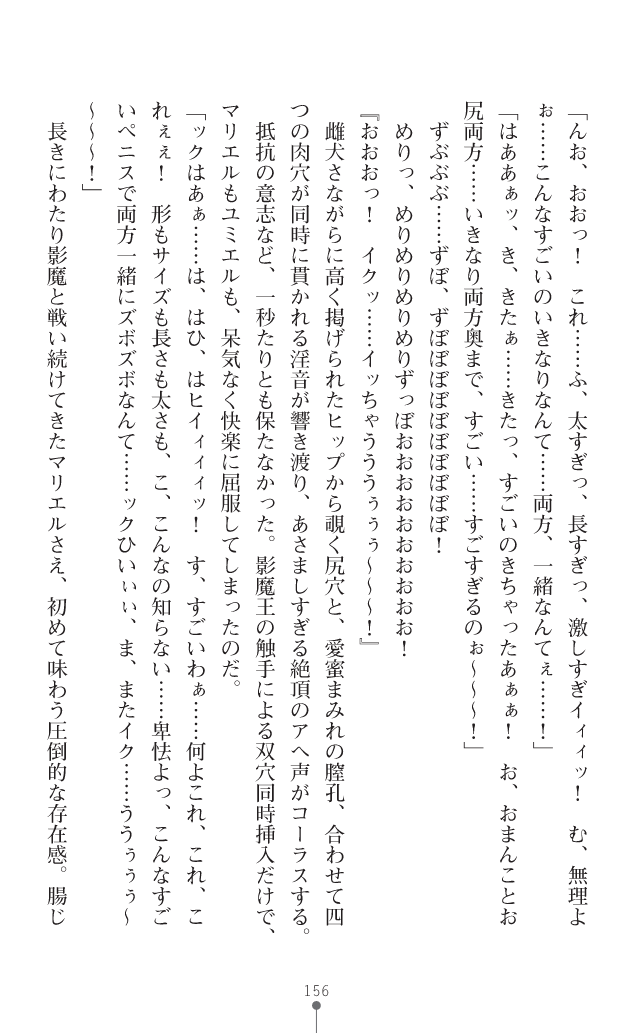 「んお、おおっ！　これ……ふ、太すぎっ、長すぎっ、激しすぎイィィッ！　む、無理よ
ぉ……こんなすごいのいきなりなんて……両方、一緒なんてぇ……！」
「はああぁッ、き、きたぁ……きたっ、すごいのきちゃったあぁぁ！　お、おまんことお
尻両方……いきなり両方奥まで、すごい……すごすぎるのぉ～～～！」
ずぶぶぶ……ずぼ、ずぼぼぼぼぼぼぼぼぼぼ！
めりっ、めりめりめりめりずっぼおおおおおおおおおお！
『おおおっ！　イクッ……イッちゃうううぅぅぅ～～～！』
雌犬さながらに高く掲げられたヒップから覗く尻穴と、愛蜜まみれの膣孔、合わせて四
つの肉穴が同時に貫かれる淫音が響き渡り、あさましすぎる絶頂のアヘ声がコーラスする。
抵抗の意志など、一秒たりとも保たなかった。影魔王の触手による双穴同時挿入だけで、
マリエルもユミエルも、呆気なく快楽に屈服してしまったのだ。
「ックはあぁ……は、はひ、はヒイィィィッ！　す、すごいわぁ……何よこれ、これ、こ
れぇぇ！　形もサイズも長さも太さも、こ、こんなの知らない……卑怯よっ、こんなすご
いペニスで両方一緒にズボズボなんて……ックひいぃぃ、ま、またイク……ううぅぅぅ～
～～～！」
長きにわたり影魔と戦い続けてきたマリエルさえ、初めて味わう圧倒的な存在感。腸じ
156